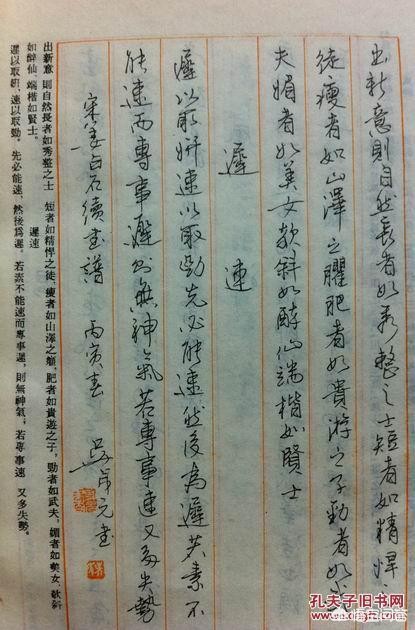 出新意則自然長者如秀整之士短者如精悍之
徒瘦者如山澤之臞肥者如貴游之子勁者如武
夫媚者如美女欹斜如醉仙端楷如賢士
遲速
遲以取妍速以取勁先必能速然後為遲若素不
能速而專事遲則無神氣若專事速又多失勢
宋姜白石續書譜 丙寅春 元書
出新意 則自然長者如秀整之士 短者如精悍之徒 瘦者如山澤之臞，肥者如貴遊之子，勁者如武夫，媚者如美女，欹斜
如醉仙，端楷如賢士。
遲速
遲以取妍，速以取勁。先必能速，然後爲遲。若素不能速而專事遲，則無神氣；若專事速 又多失勢。
孔夫子旧书网
KONGFZ.COM